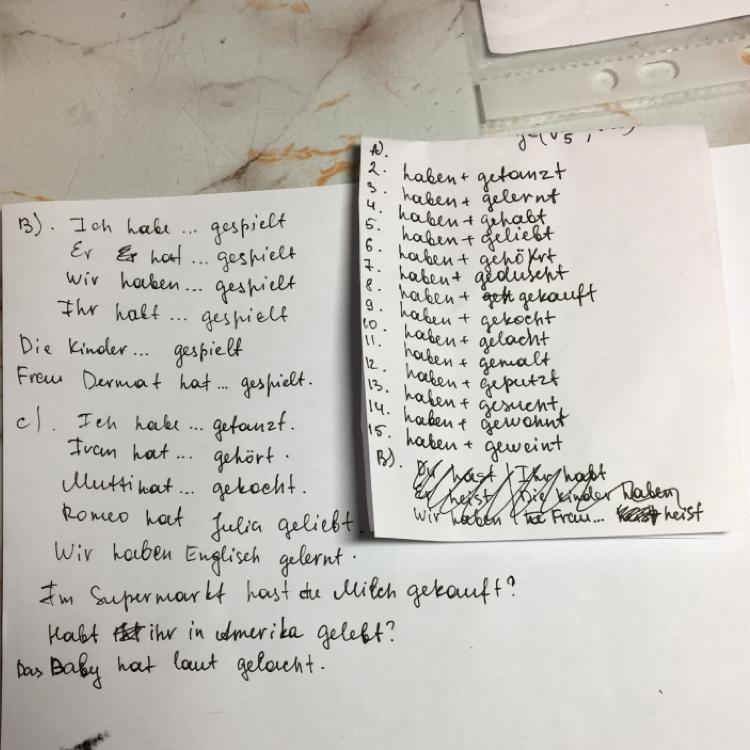 B). Ich habe ... gespielt
Er hat ... gespielt
Wir haben ... gespielt
Ihr habt ... gespielt
Die Kinder ... gespielt
Frau Dermat hat ... gespielt.
C). Ich habe ... getanzt.
Ivan hat ... gehört.
Mutti hat ... gekocht.
Romeo hat Julia geliebt.
Wir haben Englisch gelernt.
Im Supermarkt hast du Milch gekauft?
Habt ihr in Amerika gelebt?
Das Baby hat laut gelacht.
A).
2. haben + getanzt
3. haben + gelernt
4. haben + gehabt
5. haben + geliebt
6. haben + gehört
7. haben + geduscht
8. haben + gekauft
9. haben + gekocht
10. haben + gelacht
11. haben + gemalt
12. haben + geputzt
13. haben + gesucht
14. haben + gewohnt
15. haben + geweint
B). Du hast Ihr habt
Er heist Die Kinder haben
Wir haben Frau... heist